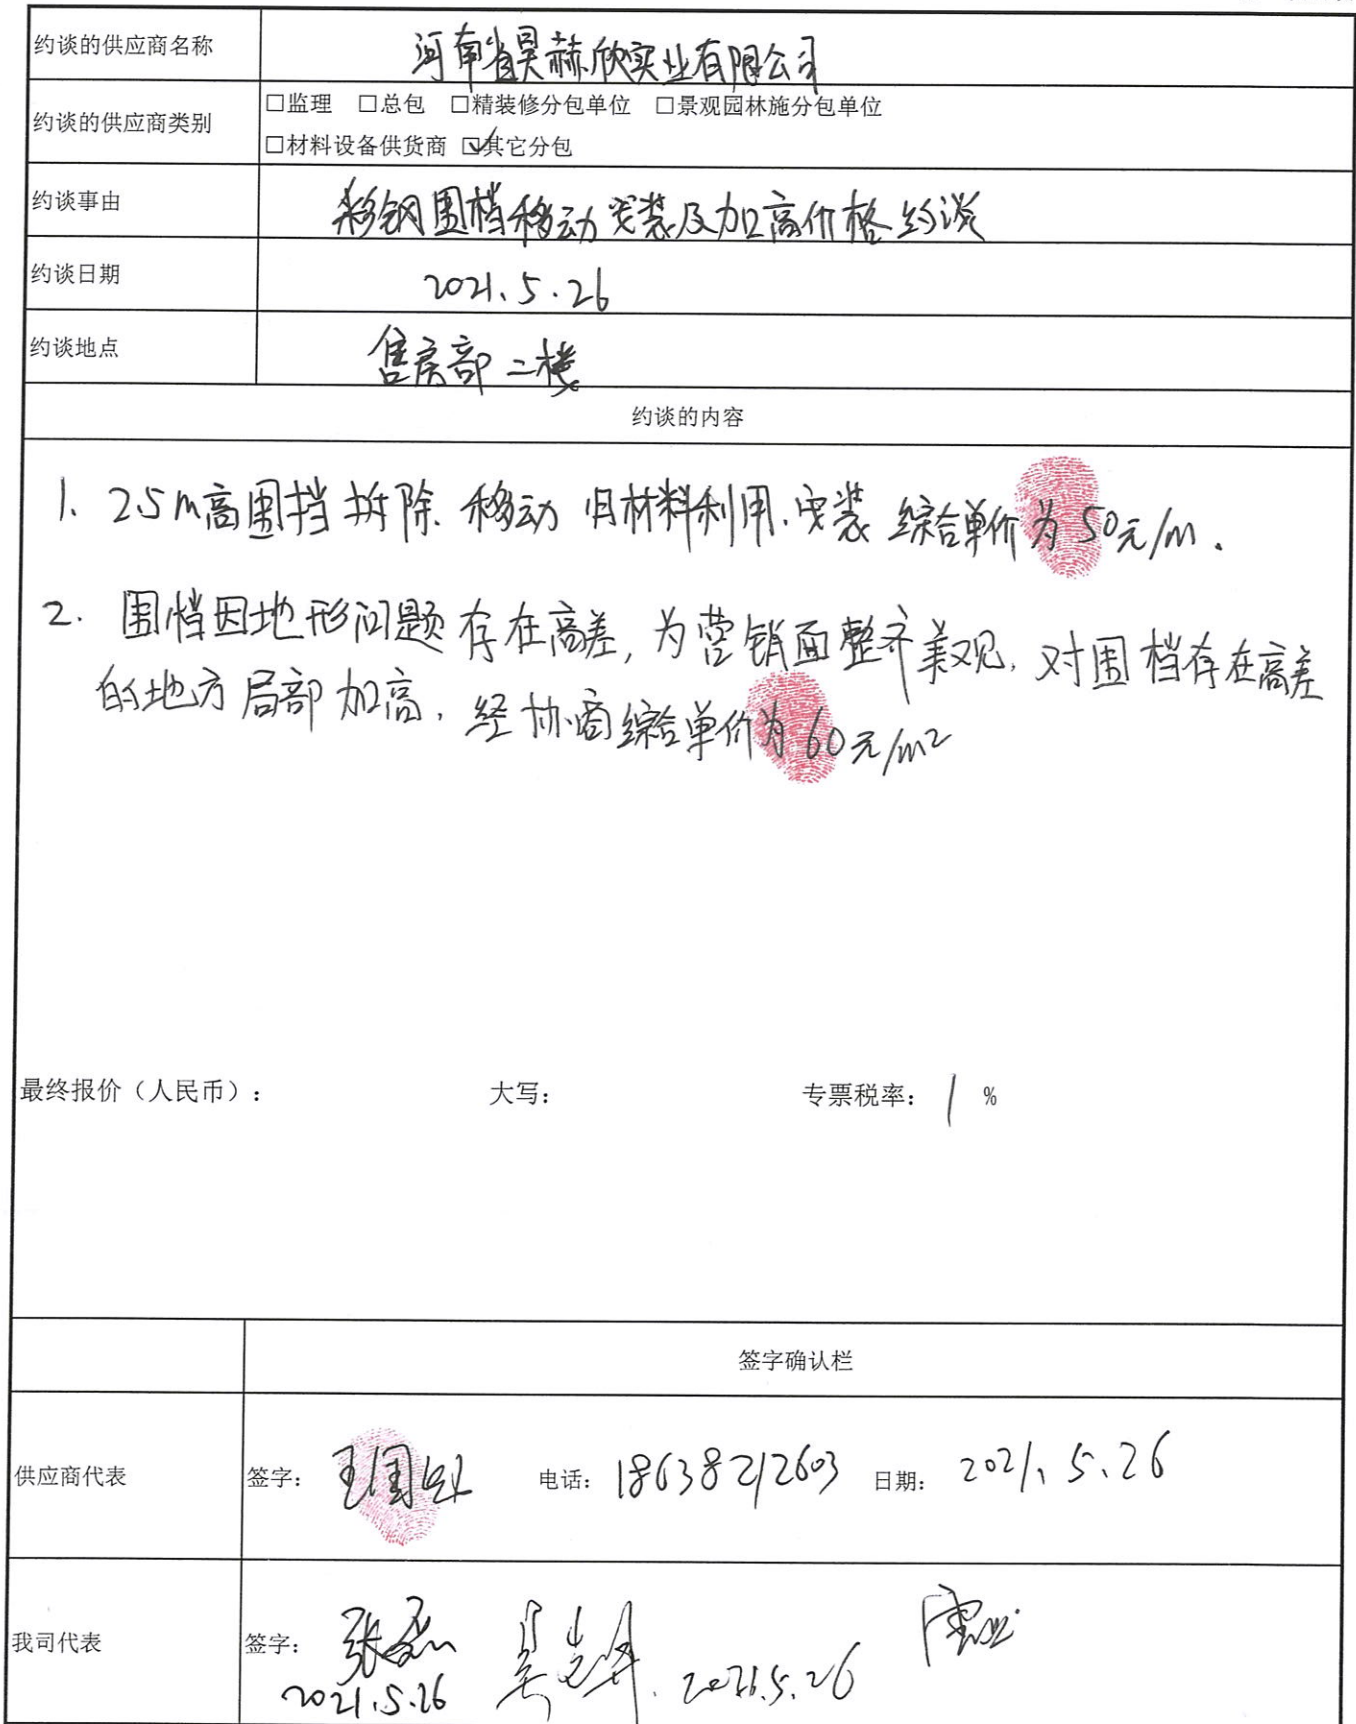 约谈的供应商名称 河南省昊赫欣实业有限公司
约谈的供应商类别 □监理 □总包 □精装修分包单位 □景观园林施分包单位
□材料设备供货商 ☑其它分包
约谈事由 彩钢围档移动安装及加高价格约谈
约谈日期 2021.5.26
约谈地点 售房部二楼
约谈的内容
1. 2.5m高围挡拆除.移动 旧材料利用.安装 综合单价为50元/m.
2. 围档因地形问题存在高差,为营销面整齐美观,对围档存在高差
的地方局部加高,经协商综合单价为60元/m²
最终报价（人民币）: 大写: 专票税率: 1 %
签字确认栏
供应商代表 签字: 电话: 18638212603 日期: 2021.5.26
我司代表 签字: 张磊
2021.5.26 2021.5.26